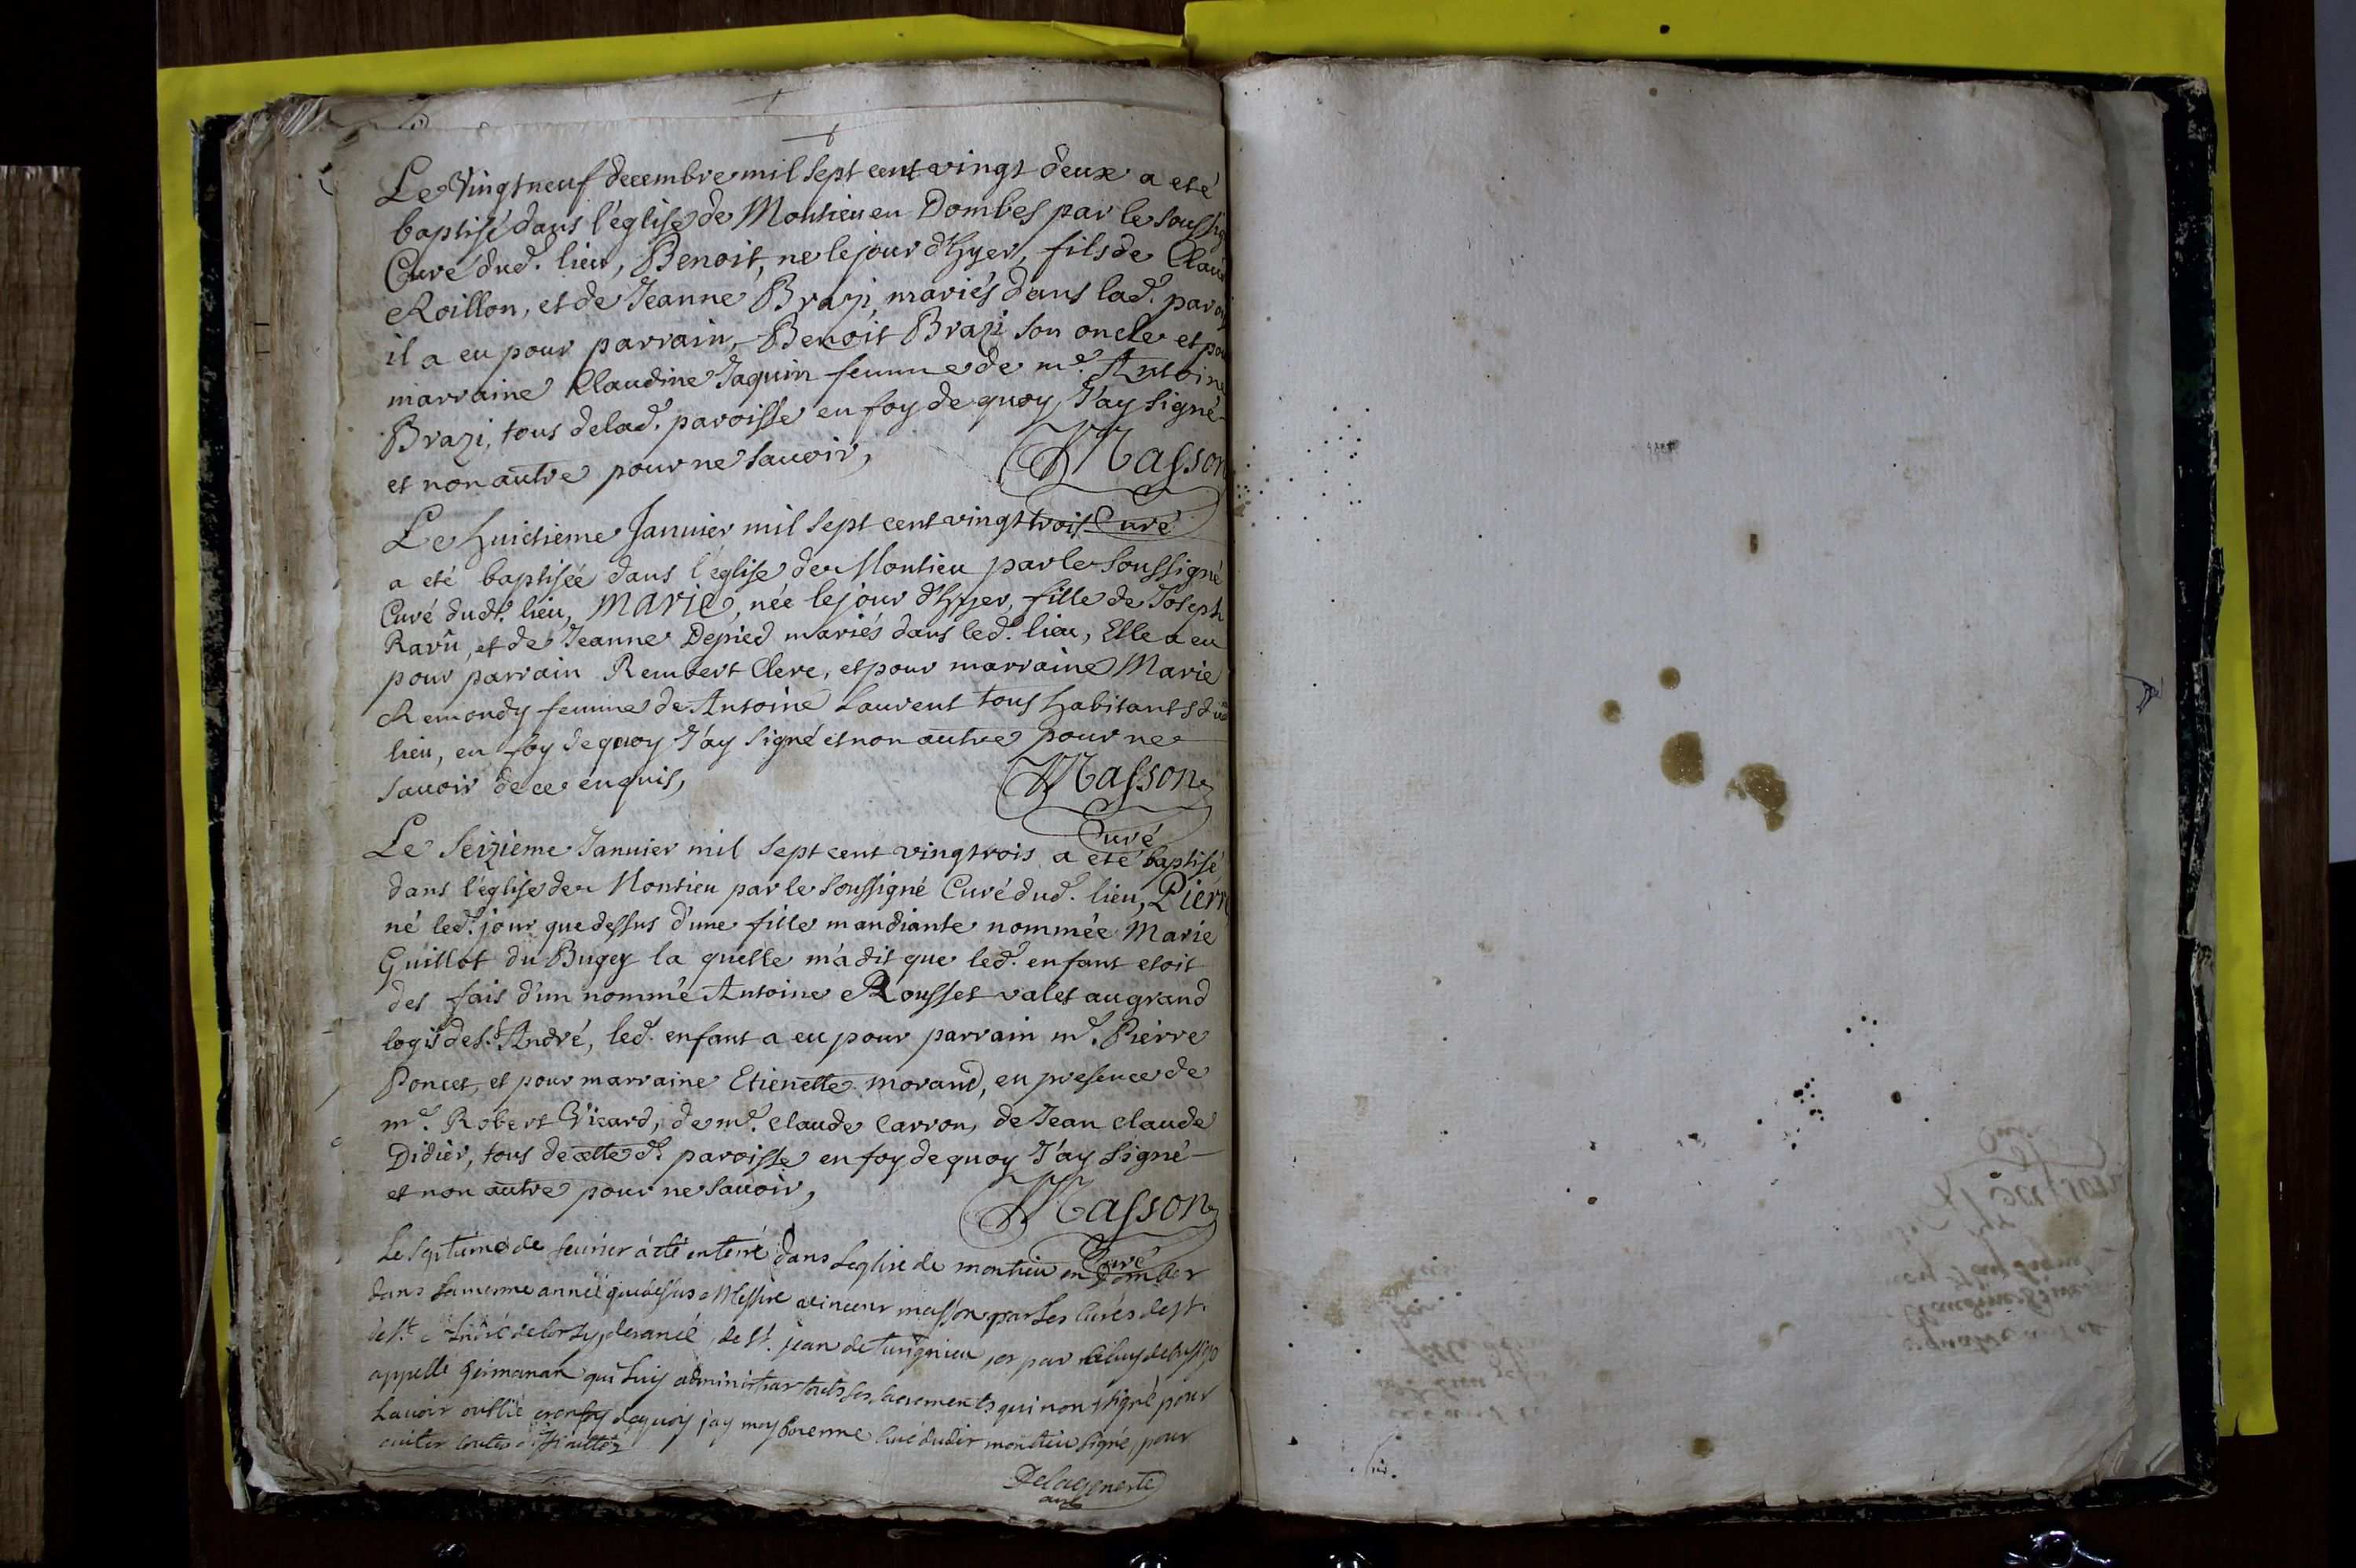 Le Vingtneuf decembre mil sept cent vingt deux a eté
baptisé dans l'église de Montieu en Dombes par le soussig
Curé dud. lieu, Benoit, ne le jour d'hyer, fils de Clau
Roillon, et de Jeanne Brazi, mariés dans lad. paroi
il a eu pour parrain, Benoit Brazi son oncle et pou
marraine Claudine Jaquin femme de mᵉ. Antoine
Brazi, tous de lad. paroisse en foy de quoy J'ay signé
et non autre pour ne savoir,
Masson
Curé
Le huictieme Janvier mil sept cent vingt trois
a eté baptisée dans l'église de Montieu par le soussigné
Curé dudt. lieu, Marie, née le jour d'hyer, fille de Joseph
Ravû, et de Jeanne Depied mariés dans led. lieu, Elle a eu
pour parrain Rembert Clere, et pour marraine Marie
Remondy femme de Antoine Laurent tous habitants dud
lieu, en foy de quoy J'ay signé et non autre pour ne
savoir de ce enquis,
Masson
Curé
Le seizieme Janvier mil sept cent vingtrois a eté baptisé
dans l'église de Montieu par le soussigné Curé dud. lieu, Pierre
né led. jour que dessus d'une fille mandiante nommée Marie
Guillot du Bugey la quelle m'a dit que led. enfant etoit
des fais d'un nommé Antoine Rousset valet au grand
logis de St. André, led. enfant a eu pour parrain mᵉ. Pierre
Poncet, et pour marraine Etienette Morand, en presence de
mᵉ. Robert Vicard, de mᵉ. Claude Carron, de Jean Claude
Didier, tous de cette d. paroisse en foy de quoy J'ay signé
et non autre pour ne savoir,
Masson
Curé
Le septieme de feurier à été enterré dans Leglise de montieu en Dombes
dans la meme année que dessus Messire vincent masson par Les Curés de st.
de st. André de Corsy, de st. jean de turignieu, et par
appellé germanan qui luy administrat touts ses sacrements qui non signé pour
Lauoir oublié en foy dequoy j'ay moy Curé dudit montieu signé, pour
euiter toutes
Delageneste
curé